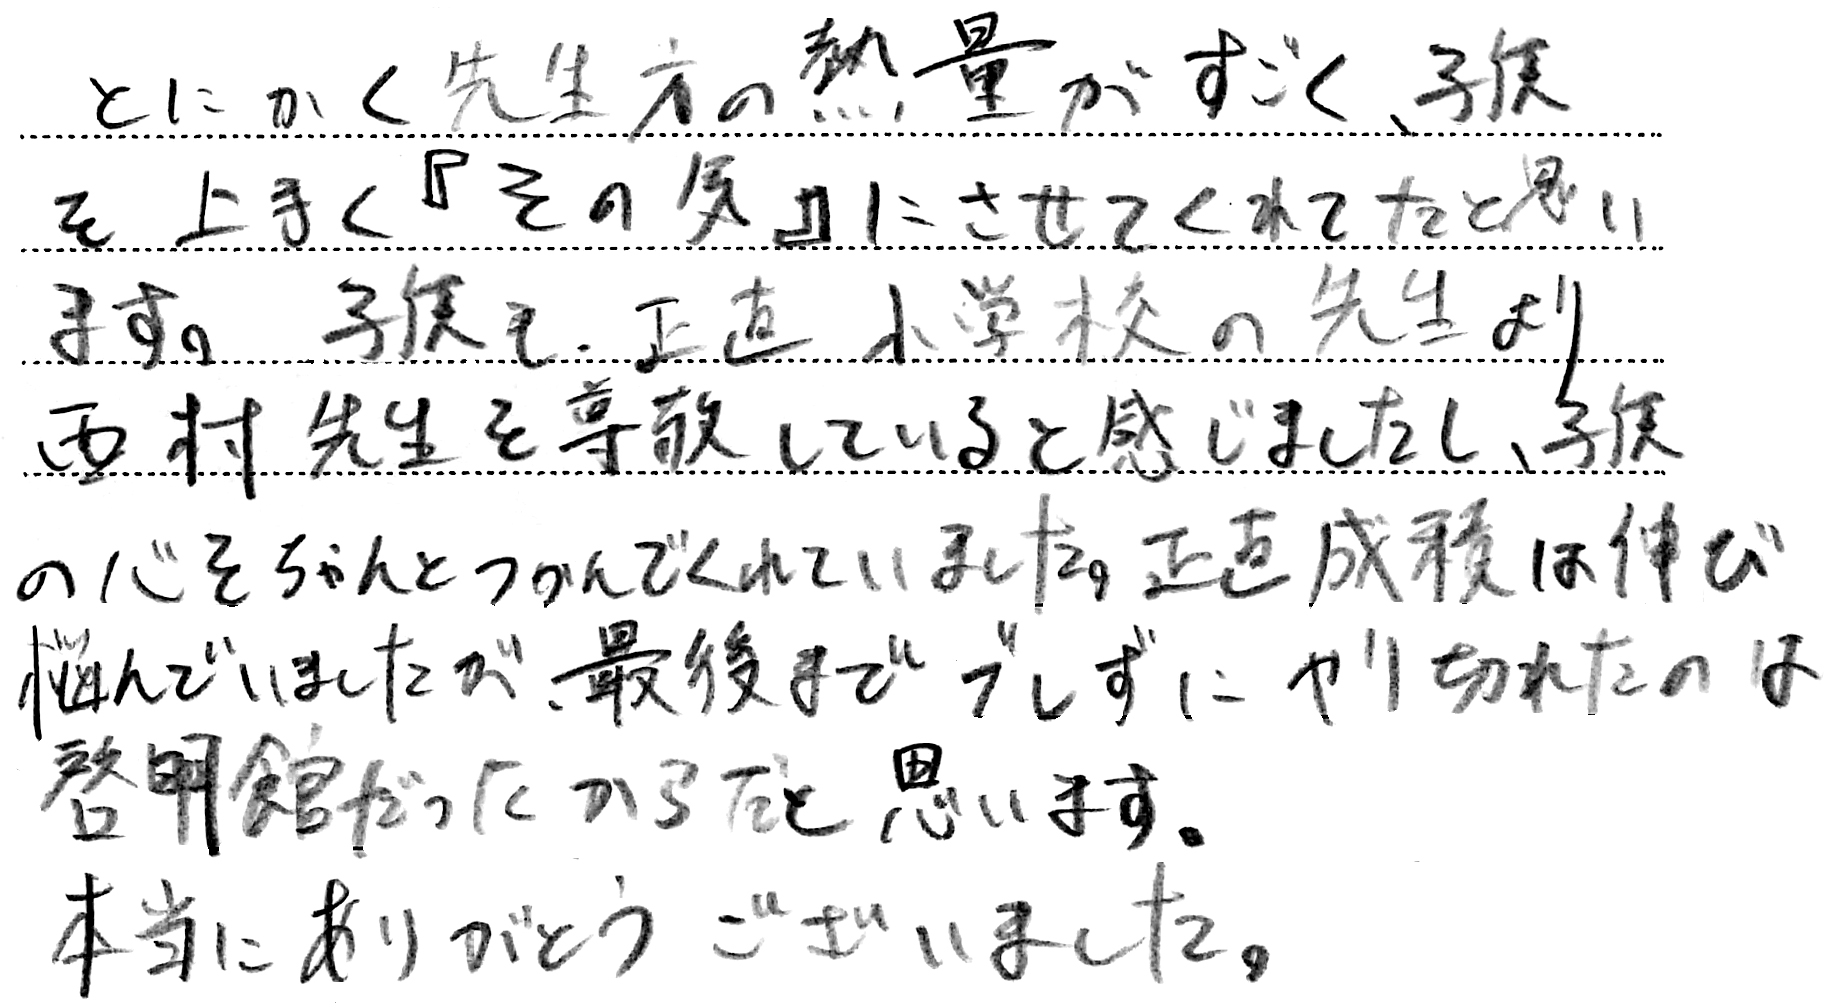 とにかく先生方の熱量がすごく、子供
を上手く『その気』にさせてくれてたと思い
ます。子供も、正直小学校の先生より
西村先生を尊敬していると感じましたし、子供
の心をちゃんとつかんでくれていました。正直成積は伸び
悩んでいましたが、最後までブレずにやり切れたのは
啓明館だったからだと思います。
本当にありがとうございました。